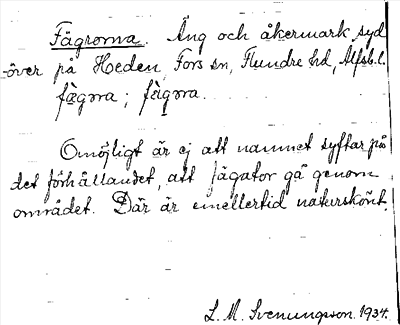 Fägrorna. Äng och åkermark syd
över på Heden, Fors sn, Flundre hd, Älfsb. l.
fägɷra; fägɷra.
Omöjligt är ej att namnet syftar på
det förhållandet, att fägator gå genom
området. Där är emellertid naturskönt.
L. M. Svenungsson. 1934.